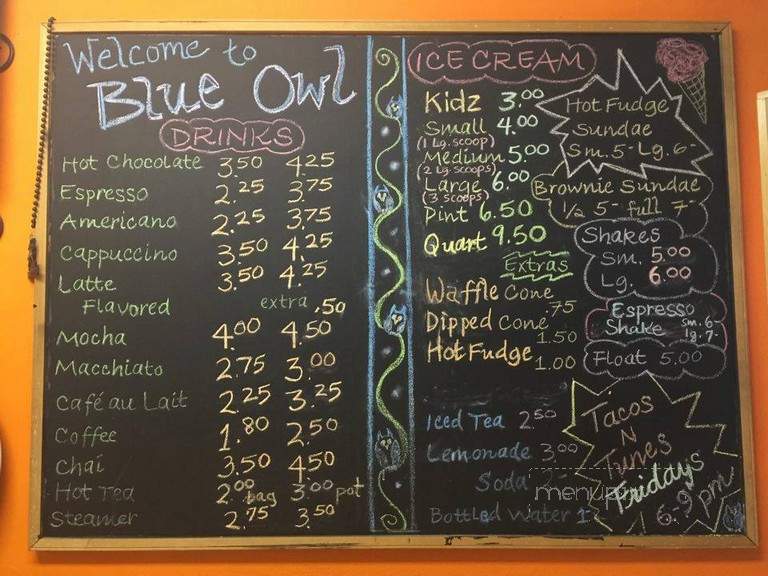 Welcome to
Blue Owl
DRINKS
Hot Chocolate 3.50 4.25
Espresso 2.25 3.75
Americano 2.25 3.75
Cappuccino 3.50 4.25
Latte 3.50 4.25
Flavored extra .50
Mocha 4.00 4.50
Macchiato 2.75 3.00
Café au Lait 2.25 3.25
Coffee 1.80 2.50
Chai 3.50 4.50
Hot Tea 2.00 bag 3.00 pot
Steamer 2.75 3.50
ICE CREAM
Kidz 3.00
Small 4.00
(1 Lg. scoop)
Medium 5.00
(2 Lg. scoops)
Large 6.00
(3 scoops)
Pint 6.50
Quart 9.50
Extras
Waffle Cone .75
Dipped Cone 1.50
Hot Fudge 1.00
Iced Tea 2.50
Lemonade 3.00
Soda
Bottled Water
Hot Fudge
Sundae
Sm. 5- Lg. 6-
Brownie Sundae
1/2 5- full 7-
Shakes
Sm. 5.00
Lg. 6.00
Espresso
Shake sm. 6-
lg. 7-
Float 5.00
Tacos
N
Tunes
Fridays
6-9 pm